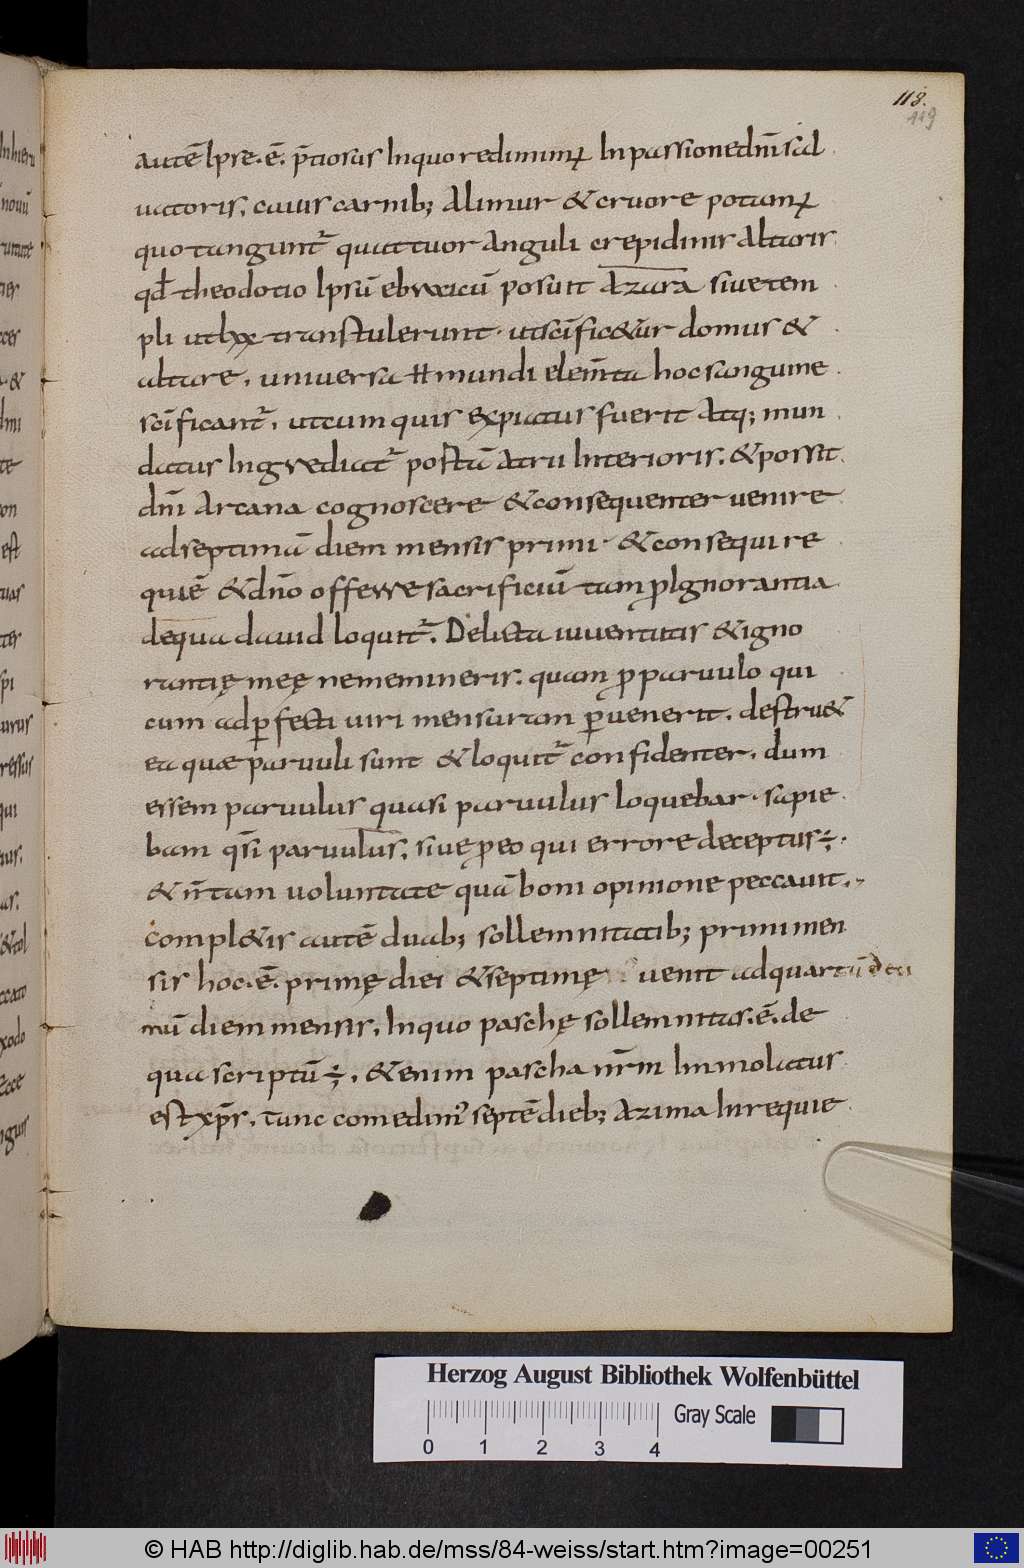 118.
119
autē Ipse·ē· p̄tiosus Inquo redimimur Inpassione dnī sal
uatoris, cuius carnib; alimur & cruore potamur
quo tangunt̄ quattuor anguli crepidinis altaris
qd̄ theodotio Ipsū ebraicū posuit azara siue tem
pli ut lxx transtulerunt· ut sc̄ific&ur domus &
altare, uniuersa H mundi elem̄ta hoc sanguine
sc̄ificant̄, ut cum quis expiatus fuerit atq; mun
datus Ingrediat̄ postā atrii Interioris. & possit
dnī arcana cognoscere & consequenter uenire
adseptimū diem mensis primi· & consequi re
quiē & dn̄o offerre sacrificiū tam p Ignorantia
dequa dauid loquit̄. Delicta iuuentutis & igno
rantię meę nememineris. quam p paruulo qui
cum adperfecti uiri mensuram peruenerit. destru&
ea quae paruuli sunt & loquit̄ confidenter, dum
essem paruulus quasi paruulus loquebar· sapie
bam qsī paruulus, siue p eo qui errore deceptus ÷·
& n̄ tam uoluntate quā boni opinione peccauit.
Compl&is autē duab; sollemnitatib; primi men
sis hoc·ē· primę diei & septimę uenit adquartū deci
mū diem mensis, Inquo paschę sollemnitas·ē· de
qua scriptū ÷, & enim pascha nr̄m Immolatus
est xp̄s, tunc comedim' septē dieb; azima Inrequie
Herzog August Bibliothek Wolfenbüttel
Gray Scale
0 1 2 3 4
© HAB http://diglib.hab.de/mss/84-weiss/start.htm?image=00251